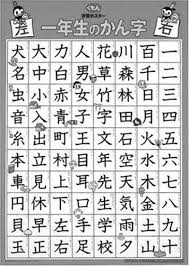 くもん
学習ポスター
左 一年生のかん字 右
犬大力人花川百一
名中白男草森千二
虫小赤女竹林日三
音入青子字田月四
糸出町王文石火五
本立村目学天水六
車見上耳校気木七
円休下口年空金八
玉早左手生雨土九
貝正右足先夕山十